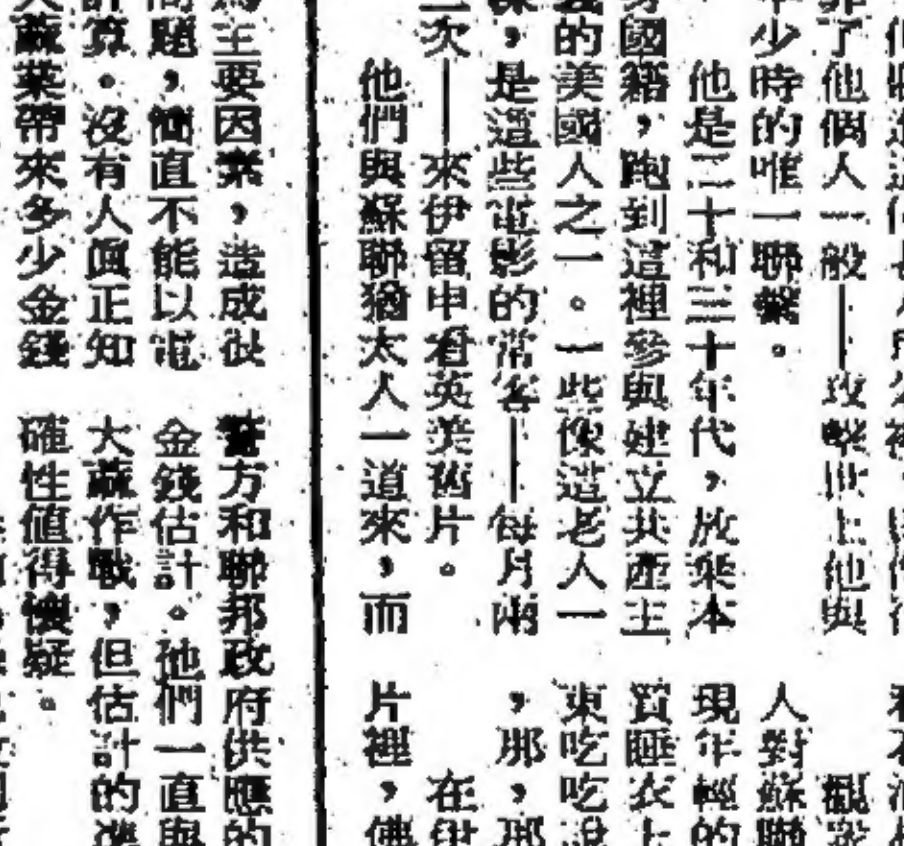 了他個人一般──攻擊世上他與
少時的唯一聯繫。
他是二十和三十年代，放棄本
國籍，跑到這裡參與建立共產主
的美國人之一。一些像這老人一
，是這些電影的常客──每月兩
次──來伊留申看英美舊片。
他們與蘇聯猶太人一道來，而
觀眾
人對蘇聯
現年輕的
買睡衣上
東吃吃說
，那，那
在伊
片裡，佛
主要因素，造成很
問題，簡直不能以電
計算。沒有人眞正知
大蔴葉帶來多少金錢
警方和聯邦政府供應的
金錢估計。他們一直與
大蔴作戰，但估計的準
確性值得懷疑。